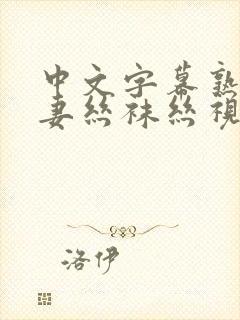 中文字幕熟
妻丝袜丝视
洛伊